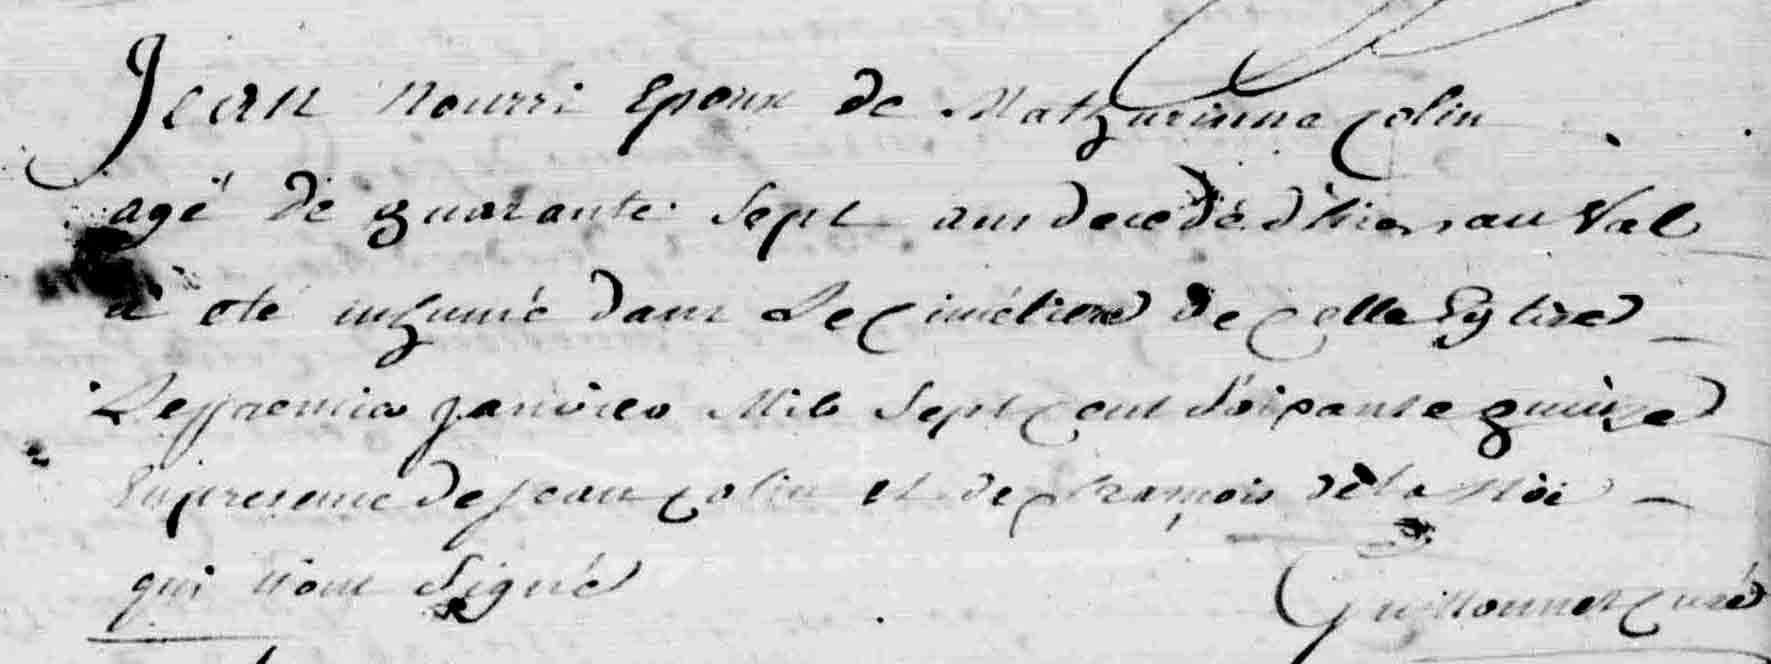 Jean Nourri Epoux de Mathurinne Colin
agé de quarante Sept ans decedé d'hier au Val
a eté inhumé dans Le Cimétiere de Cette Eglise
Le premier Janvier Mil Sept Cent Soixante quinze
En presence de Jean Colin et de François de la Noë
qui n'ont Signé
Guillonnet Curé